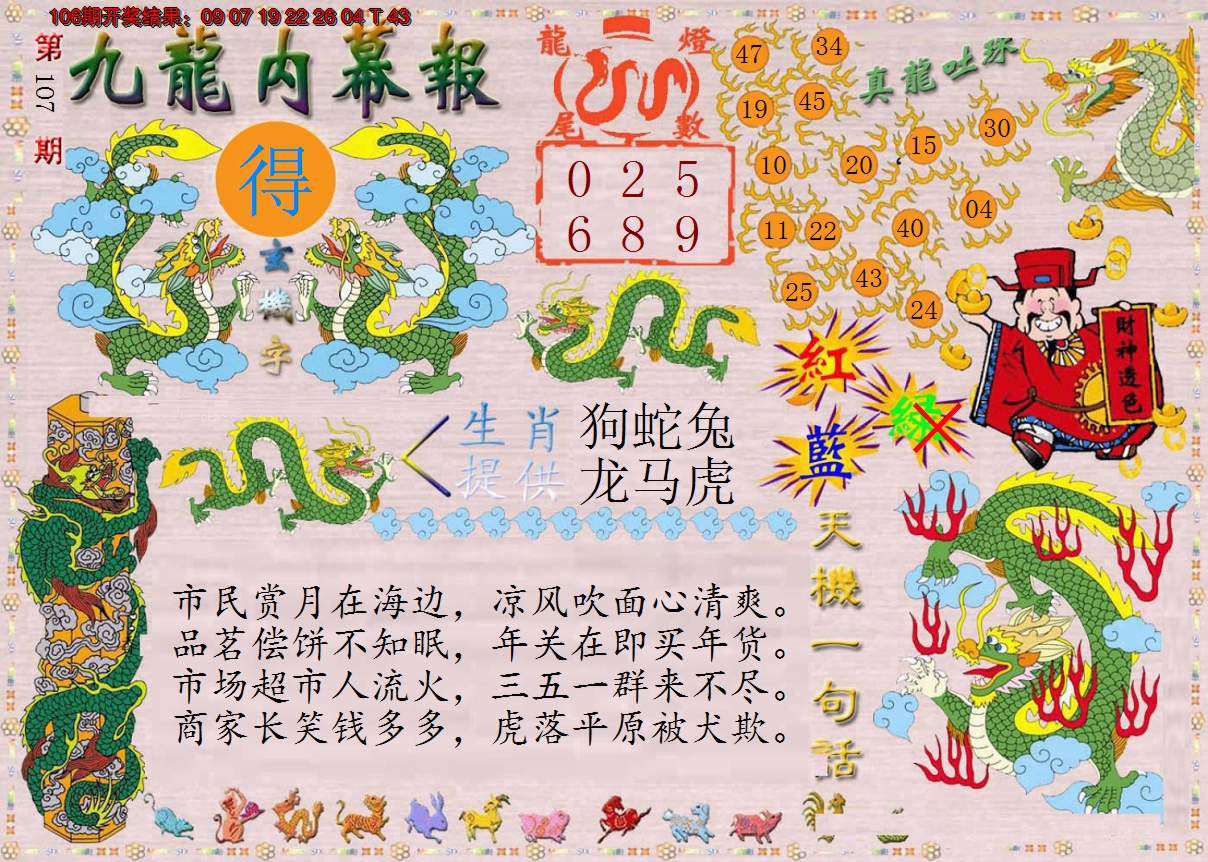 106期开奖结果：09 07 19 22 26 04 T 43
第107期
九龍内幕報
得
玄機字
龍燈
尾數
0 2 5
6 8 9
真龍吐珠
47
34
19
45
15
30
10
20
04
11
22
40
43
25
24
財神透色
紅
綠
藍
生肖提供
狗蛇兔
龙马虎
天機一句話
市民赏月在海边，凉风吹面心清爽。
品茗偿饼不知眠，年关在即买年货。
市场超市人流火，三五一群来不尽。
商家长笑钱多多，虎落平原被犬欺。